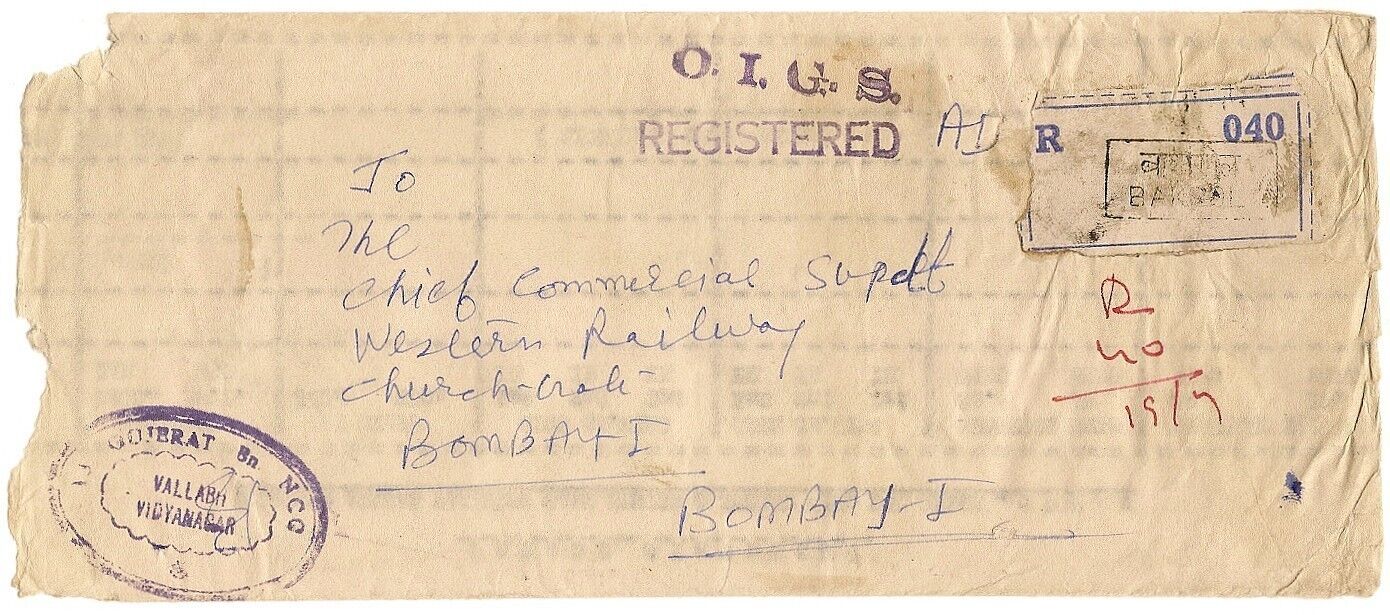 O. I. G. S.
REGISTERED AD
R 040
To
The
Chief Commercial Supdtt
Western Railway
Church-Gate
BOMBAY-I
BOMBAY-I
R
40
19/9
GUJERAT Bn NCC
VALLABH
VIDYANAGAR